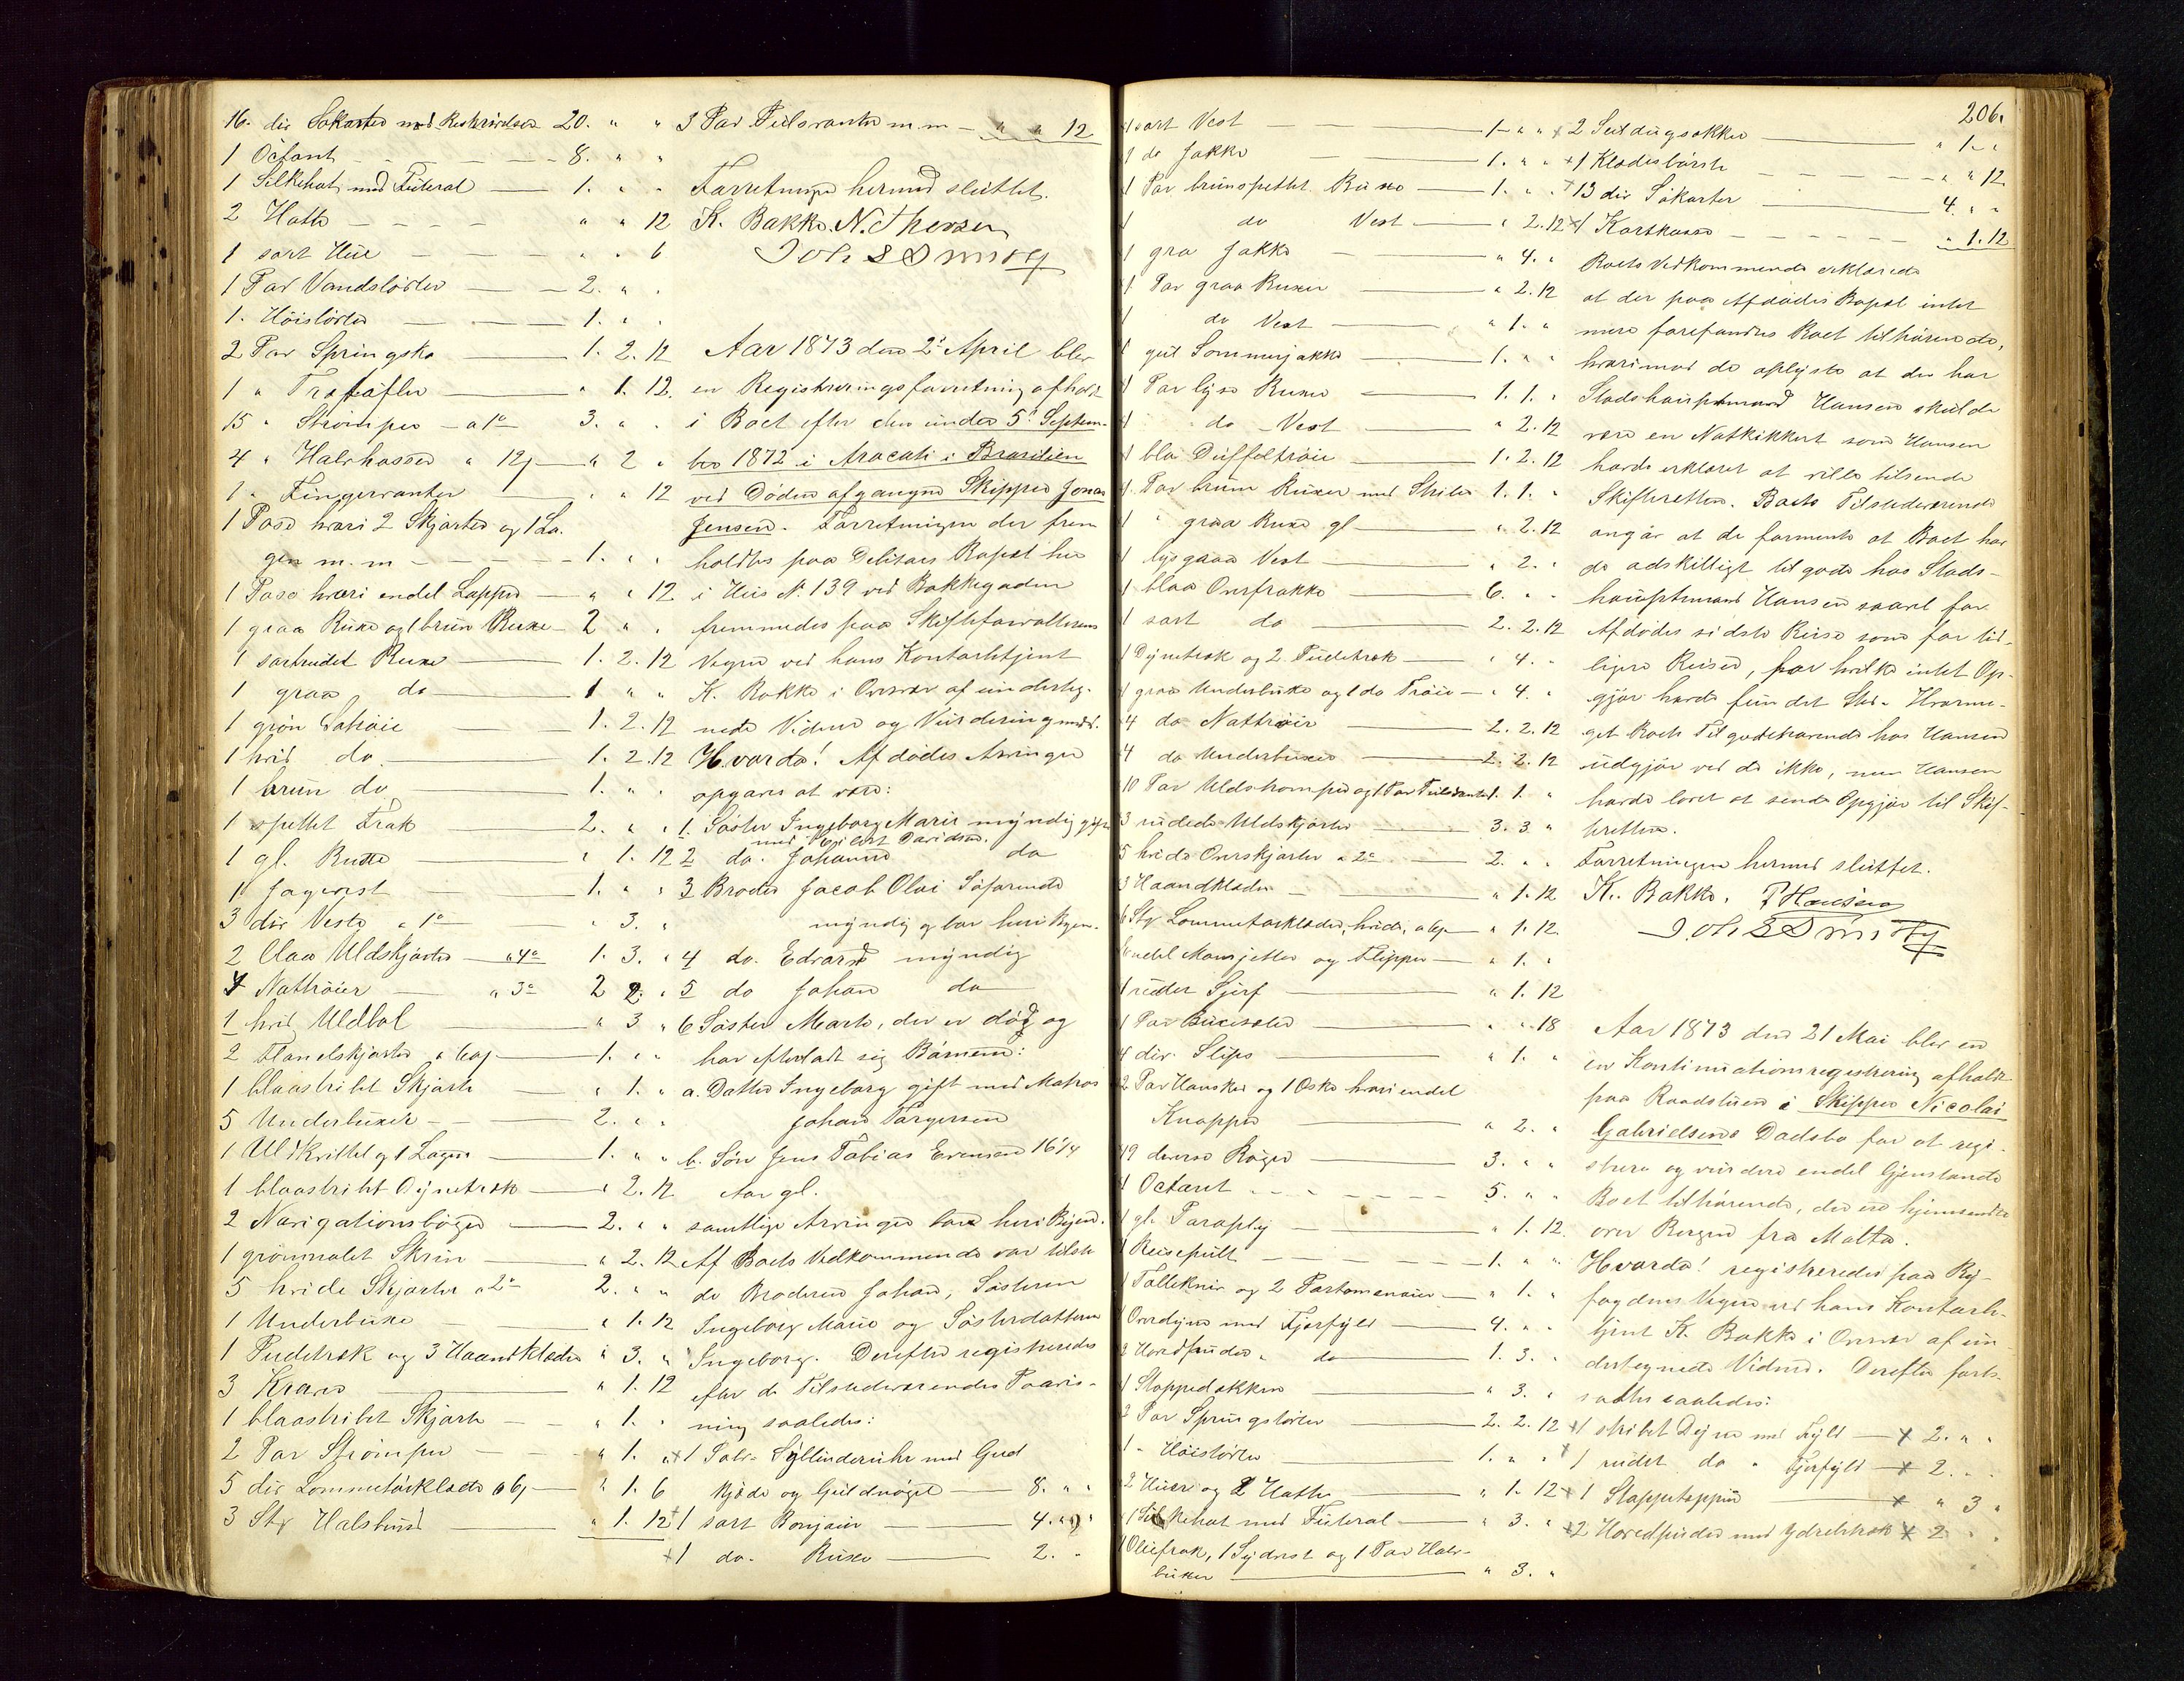 16. div Søkarter med Beskrivelser 20. " "
1 Octant — 8. " "
1 Silkehat med Futeral — 1. " "
2 Hatte — " " 12
1 sort Hue — " " 6
1 Par Vandstövler — 2. " "
1. Höistövler — 1. " "
2 Par Springsko — 1. 2. 12
1 " Tratøfler — " 1. 12.
15 " Strömper — a 1o 3. " "
4 " Halvhosser a 12 — " 2 "
1 " Fingervanter — " " 12
1 Pose hvori 2 Skjorter og 1 La-
gen m. m — 1. " "
1 Pose hvori endel Lapper — " " 12
1 graa Buxe og 1 brun Buxe — 2 " "
1 sortrudet Buxe — 1. 2. 12
1 graa do — 1 " "
1 grön Patröie — 1. 2. 12
1 hvid do — 1. 2. 12
1 brun do — 1. " "
1 spettet Frak — 2. " "
1 gl. Buxe — " 1. 12
1 Jagvest — 1. " "
3 div Veste a 1o — " 3. "
2 blaa Uldskjorter — a 4o 1. 3. "
4 Nattröier — a 3o 2 2. "
1 hvid Uldbol — " 3 "
2 Flanelskjorter — 1. " "
1 blaastribet Skjorte — " 1. "
5 Underbuxer — 2. " "
1 Uldkvittel og 1 Lagen — 1. " "
1 blaastribt Dynetræk — " 2. 12
2 Navigationsböger — 2. " "
1 grönmalet Skrin — " 2. 12
5 hvide Skjorter a 2o 2. " "
1 Underbuxe — " 1. 12
1 Pudetræk og 3 Haandklæder " 3. "
3 Kraver — " 1. 12
1 blaastribet Skjorte — " 1. "
2 Par Strömper — " 1. "
5 div Lommetörklæder a 6 — " 1. 6
3 Stk Halstörk — " 1. 12
3 Par Uldvanter m m — " " 12
Forretningen hermed sluttet.
K. Bakke. N. Thersen
Joh S Smith
Aar 1873 den 2d April blev
en Registreringsforretning afholdt
i Boet efter den under 5te Septem-
ber 1872 i Aracati i Brasilien
ved Döden afgangne Skipper Jonas
Jensen. Forretningen der frem
holdtes paa Debitors Bopæl her
i Huus No 139 ved Bakkegaden
fremmedes paa Skifteforvalterens
Vegne ved hans Kontorbetjent
K. Bakke i Overvær af underteg-
nede Vidner og Vurderingsmænd.
Hvorda! Afdödes Arvinger
opgaves at være:
1. Söster Ingeborg Marie myndig gift
med Eilert Davidsen.
2 do. Johanne do
3 Broder Jacob Olai Söfarende
myndig og bor her i Byen.
4 do. Edvard myndig
5 do Johan do
6 Söster Marte, der er död og
har efterladt sig Börnene:
a. Datter Ingeborg gift med Matros
Johan Torgersen
b. Sön Jens Tobias Evensen 16 1/4
Aar gl.
samtlige Arvinger bor her i Byen.
Af Boets Vedkommende var tilste-
de Broderen Johan, Söstrene
Ingeborg Marie og Sösterdatteren
Ingeborg. Derefter registreredes
efter de Tilstedeværendes Paavis-
ning saaledes:
x1 Sölv Cyllinderuhr med Guld
kjæde og Guldnögel — 8. " "
x1 sort Bonjour — 4. " "
x1 do. Buxe — 2. "
206.
1 sort Vest — 1 " "
1 do Jakke — 1. " "
1 Par brunspettet Buxe — 1. " "
1 do Vest — " 2. 12
1 graa Jakke — " 4. "
1 Par graa Buxer — " 2. 12
1 do Vest — " 1. "
1 gul Sommerjakke — 1. " "
1 Par lyse Buxer — 1. 1. "
1 do Vest — " 2. 12
1 blaa Duffeltröie — 1. 2. 12
1 Par brune Buxer med Striber 1. 1. "
1 " graa Buxe gl — " 2. 12
1 lysgraa Vest — " 2. "
1 blaa Overfrakke — 6. " "
1 sort do — 2. 2. 12
1 Dynetræk og 2 Pudetræk — " 4. "
1 graa Underbuxe og 1 do Tröie — " 4. "
4 do Nattröier — 2. 2. 12
4 do Underbuxer — 2. 2. 12
10 Par Uldströmper og 1 Par Uldvanter 1. 1. "
3 rudede Uldskjorter — 3. 3. "
5 hvide Overskjorter a 2o — 2. " "
3 Haandklæder — " 1. 12
6 Stk Lommetörklæder, hvide, — " 1. 12.
Endel Mansjetter og Flipper — " 1. "
1 rudet Sjerf — " 1. 12
1 Par Buxeseler — " " 18
4 div. Slips — " 1. "
2 Par Hansker og 1 Æske hvori endel
Knapper — " 2. "
19 diverse Böger — 3. " "
1 Octant — 5. " "
1 gl. Paraply — " 1. 12.
1 Reisepult — 1. " "
1 Tollekniv og 2 Portemonaier — " 1. "
1 Overdyne med Fjærfyld — 4. " "
2 Hovedpuder " do — 1. 3. "
1 Stoppedækken — " 3. "
2 Par Springstövler — 2. 2. 12
1 " Höistövler — 1. " "
2 Huer og 2 Hatte — " 1. 12
1 Silkehat med Futeral — " 3. "
1 Oliefrak, 1 Sydvest og 1 Par Halv-
buxer — " 3. "
x 2 Seildugsækker — " 1. "
x1 Klædesbörste — " " 12
13 div Sökarter — 4. " "
x1 Kortkasse — " 1. 12
Boets Vedkommende erklærede
at der paa Afdödes Bopæl intet
mere forefandtes Boet tilhörende,
hvorimod de oplyste at der hos
Stadshauptmand Hansen skulde
være en Natkikkert som Hansen
havde erklæret at ville tilsende
Skifteretten. Boets Tilstedeværende
angav at de formente at Boet har
do adskilligt tilgode hos Stads-
hauptmand Hansen saavel for
Afdödes sidste Reise som for tid-
ligere Reiser, for hvilke intet Op-
gjör havde fundet Sted. Hvorme-
get Boets Tilgodehavende hos Hansen
udgjör ved de ikke, men Hansen
havde lovet at sende Opgjör til Skif-
teretten.
Forretningen hermed sluttet.
K. Bakke. P Hansen
Joh S Smith
Aar 1873 den 21 Mai blev en
en Kontinuationsregistrering afholdt
paa Raadstuen i Skipper Nicolai
Gabrielsens Dødsbo for at regi-
strere og vurdere endel Gjenstande
Boet tilhörende, der ere hjemsendte
over Bergen fra Malta.
Hvorda! registreredes paa By-
fogdens Vegne ved hans Kontorbe-
tjent K. Bakke i Overvær af un-
dertegnede Vidner. Derefter fort-
sattes saaledes:
x1 stribet Dyne med Fyld — x 2. " "
x1 rudet do " Fjærfyld — x 2. " "
x1 Stoppetæppe — x " 3 "
x2 Hovedpuder med Ydretræk x 2 " "